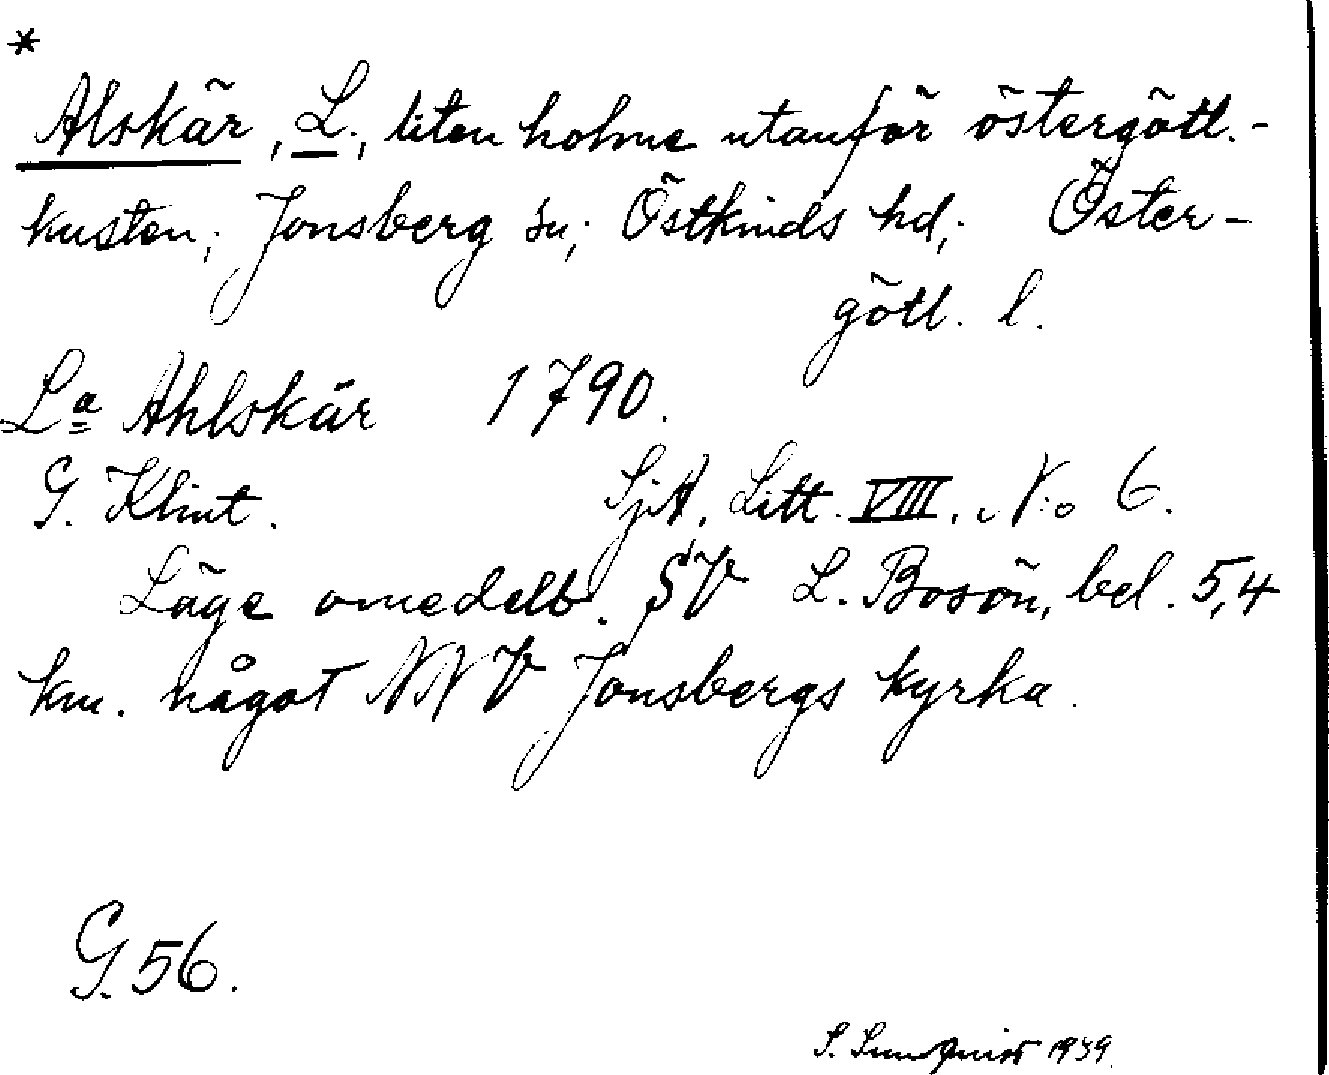 *
Alskär, L., liten holme utanför östergötl.-
kusten; Jonsberg sn; Östkinds hd; Öster-
götl. l.
La Ahlskär 1790.
G. Klint. SjA. Litt. VIII. N:o 6.
Läge omedelb. SV L. Bosön, bel. 5,4
km. något NNV Jonsbergs kyrka.
G. 56.
S. Sundquist 1939.